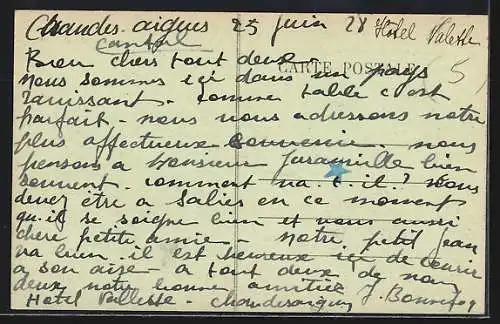 Chaudes-aigues 25 juin 28 Hotel Valette
Cantal
CARTE POSTALE 5
Bien chers tout deux
nous sommes ici dans un pays
ravissant - comme table c'est
parfait - nous vous adressons notre
plus affectueux souvenir. nous
pensons a monsieur bien
souvent. comment va-t-il? Vous
devez être a Salies en ce moment
qu-il se soigne bien et vous aussi
chere petite amie - notre petit Jean
va bien. il est heureux ici de courir
a son aise a tout deux de nous
deux notre bonne amitiée
Hotel Vallette - Chaudesaigues J. Bonnefoy